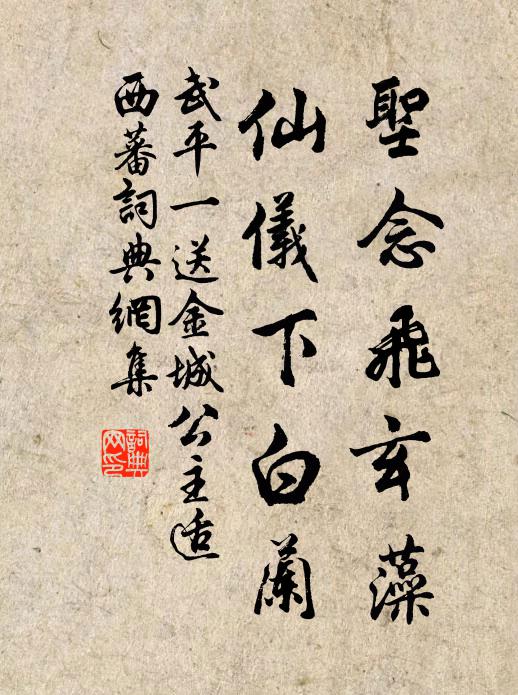 聖念飛玄藻
仙儀下白蘭
武平一送金城公主适
西蕃詞典網集
詞典網印